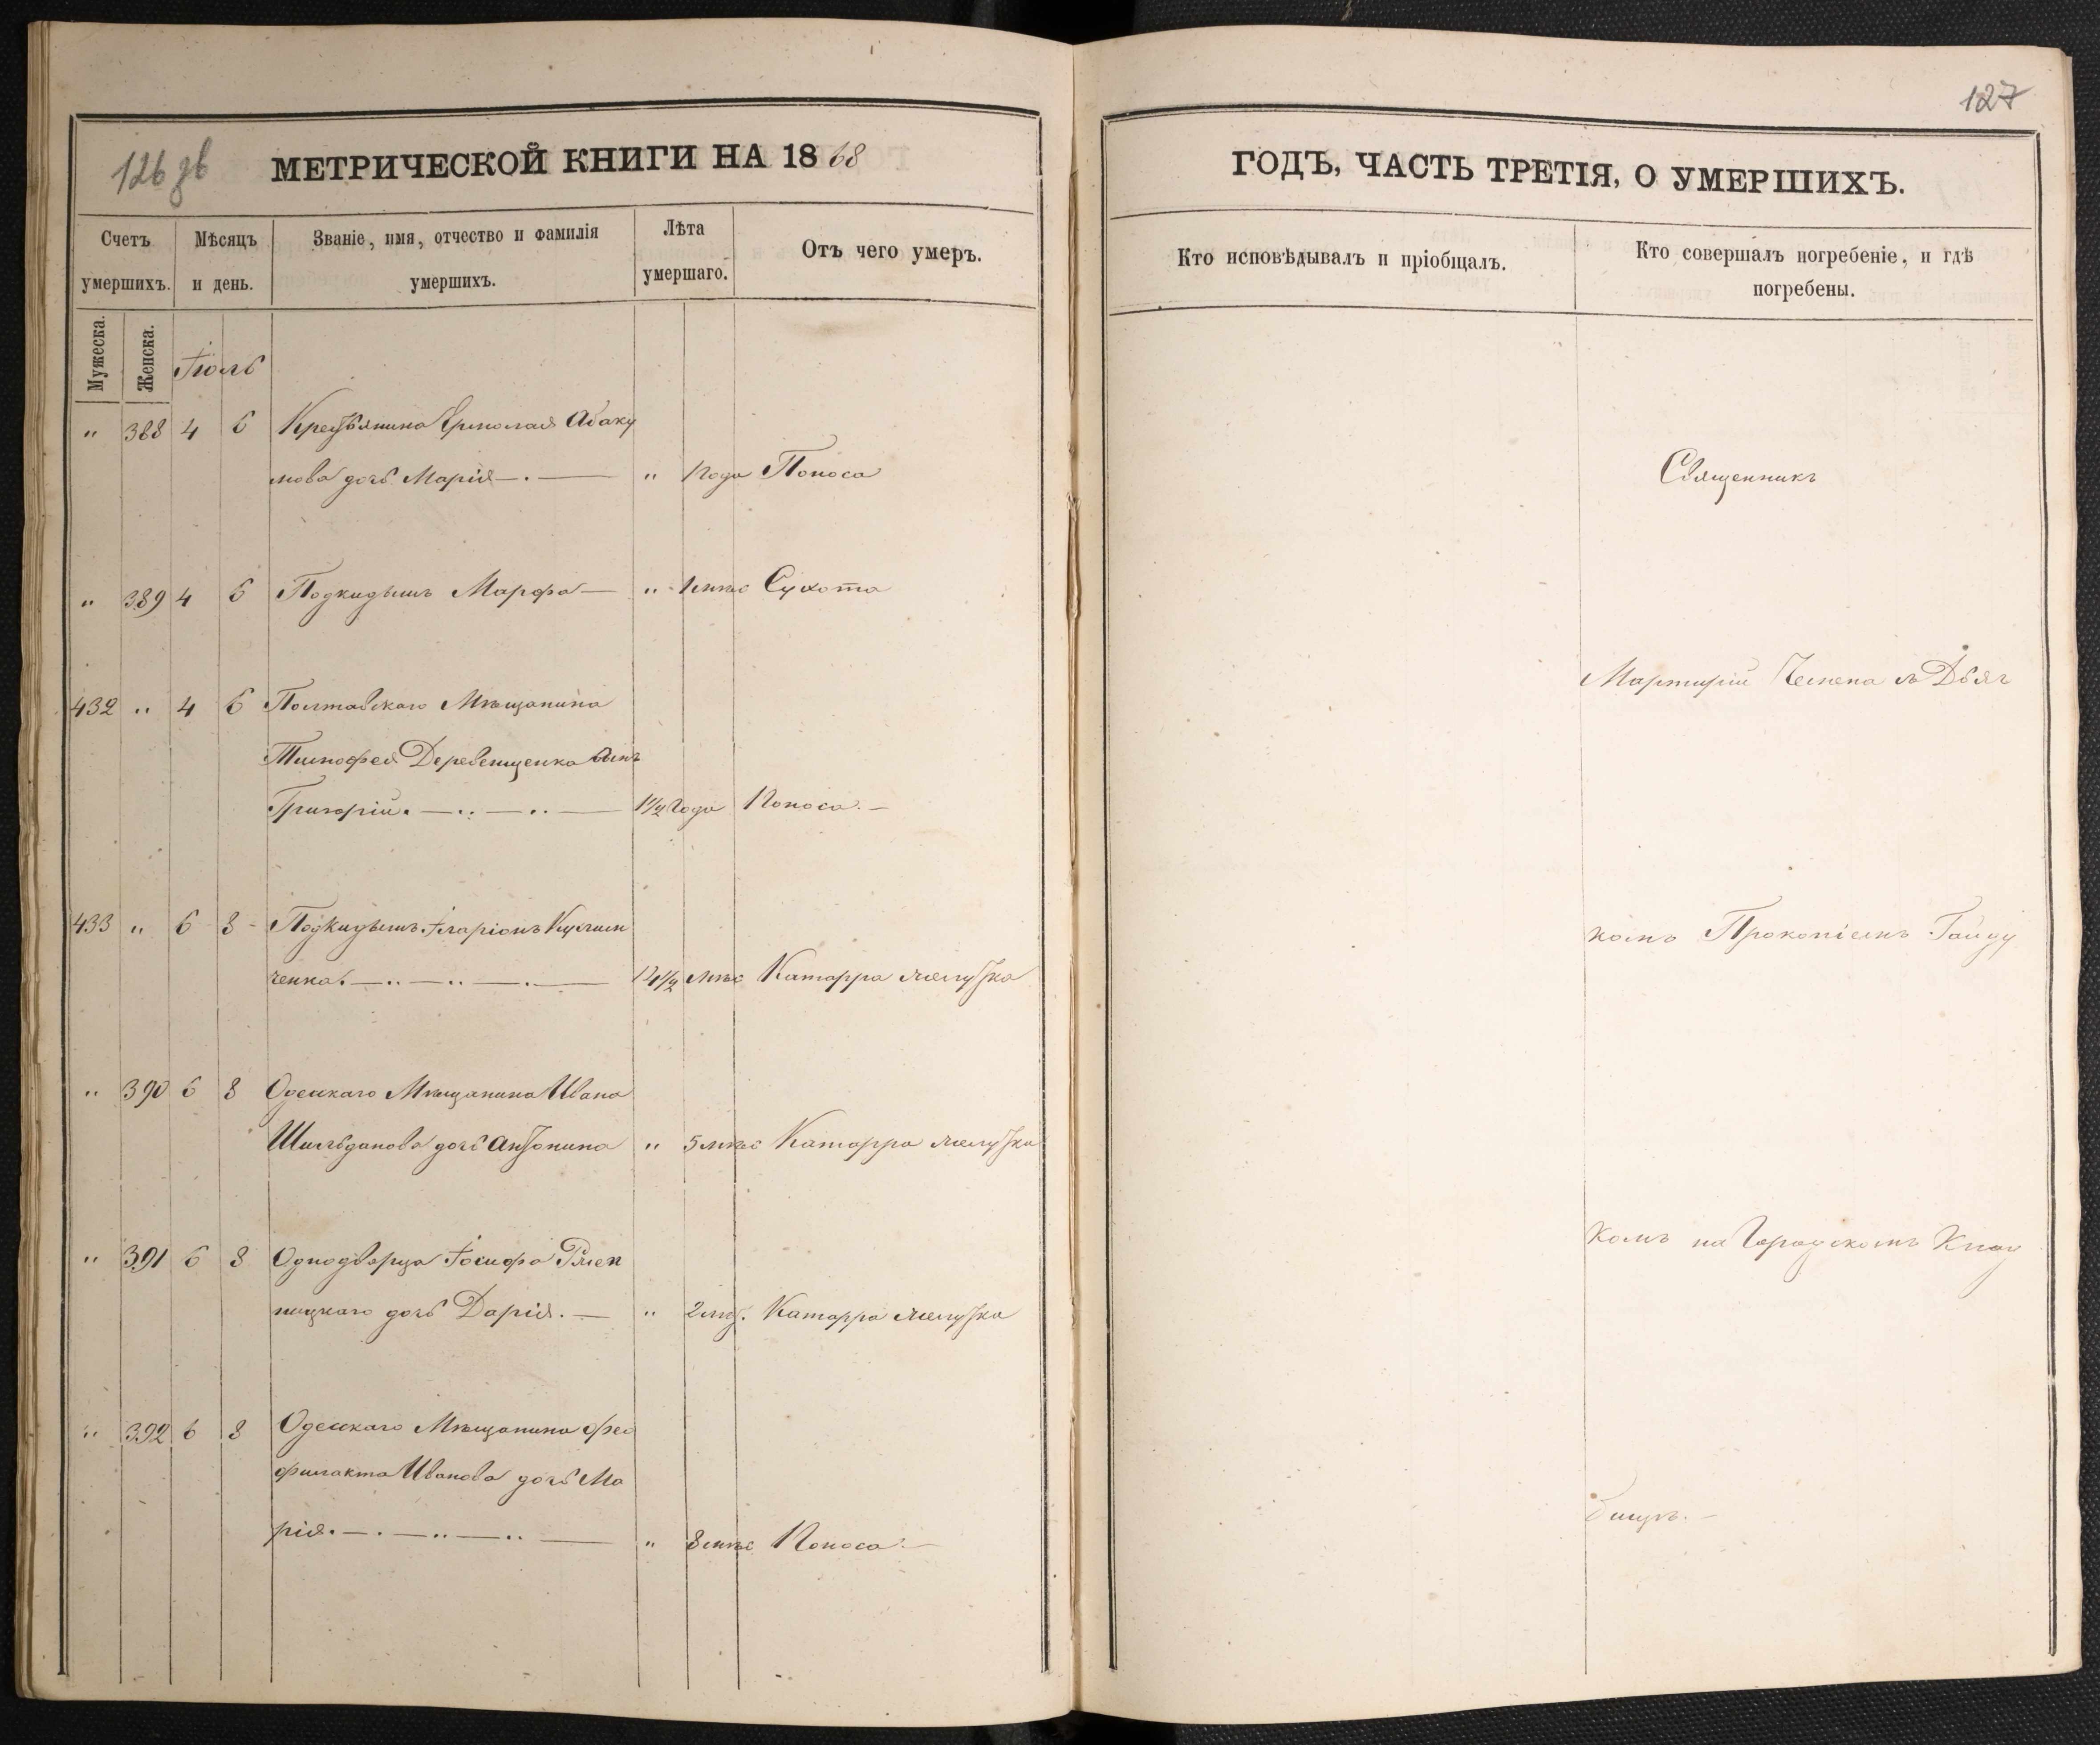 126 зв
МЕТРИЧЕСКОЙ КНИГИ НА 1868
Счетъ умершихъ.
Мѣсяцъ и день.
Званіе, имя, отчество и фамилія умершихъ.
Лѣта умершаго.
Отъ чего умеръ.
Мужеска.
Женска.
Іюль
" 388 4 6 Крестьянина Ермолая Абаку
мова дочь Марія —.— " 1 года Поноса
" 389 4 6 Подкидышъ Марфа — " 1 мѣс Сухота
432 " 4 6 Полтавскаго Мѣщанина
Тимофея Деревенщенка сынъ
Григорій. —..—..— 1½ года Поноса.—
433 " 6 8 Подкидышъ Іларіонъ
ченка. —..—..—.— мѣс Катарра желудка
" 390 6 8 Одесскаго Мѣщанина Ивана
дочь Антонина " 5 мѣс Катарра желудка
" 391 6 8 Однодворца Іосифа
ницкаго дочь Дарія. — " Катарра желудка
" 392 6 8 Одесскаго Мѣщанина Фео
филакта Иванова дочь Ма
рія. —.—..—..— " 8 мѣс Поноса.—
127
ГОДЪ, ЧАСТЬ ТРЕТІЯ, О УМЕРШИХЪ.
Кто исповѣдывалъ и пріобщалъ.
Кто совершалъ погребеніе, и гдѣ погребены.
Священникъ
Мартирій Чемена съ Дьяч
комъ Прокопіемъ Гайду
комъ на Городскомъ Клад
бищѣ.—